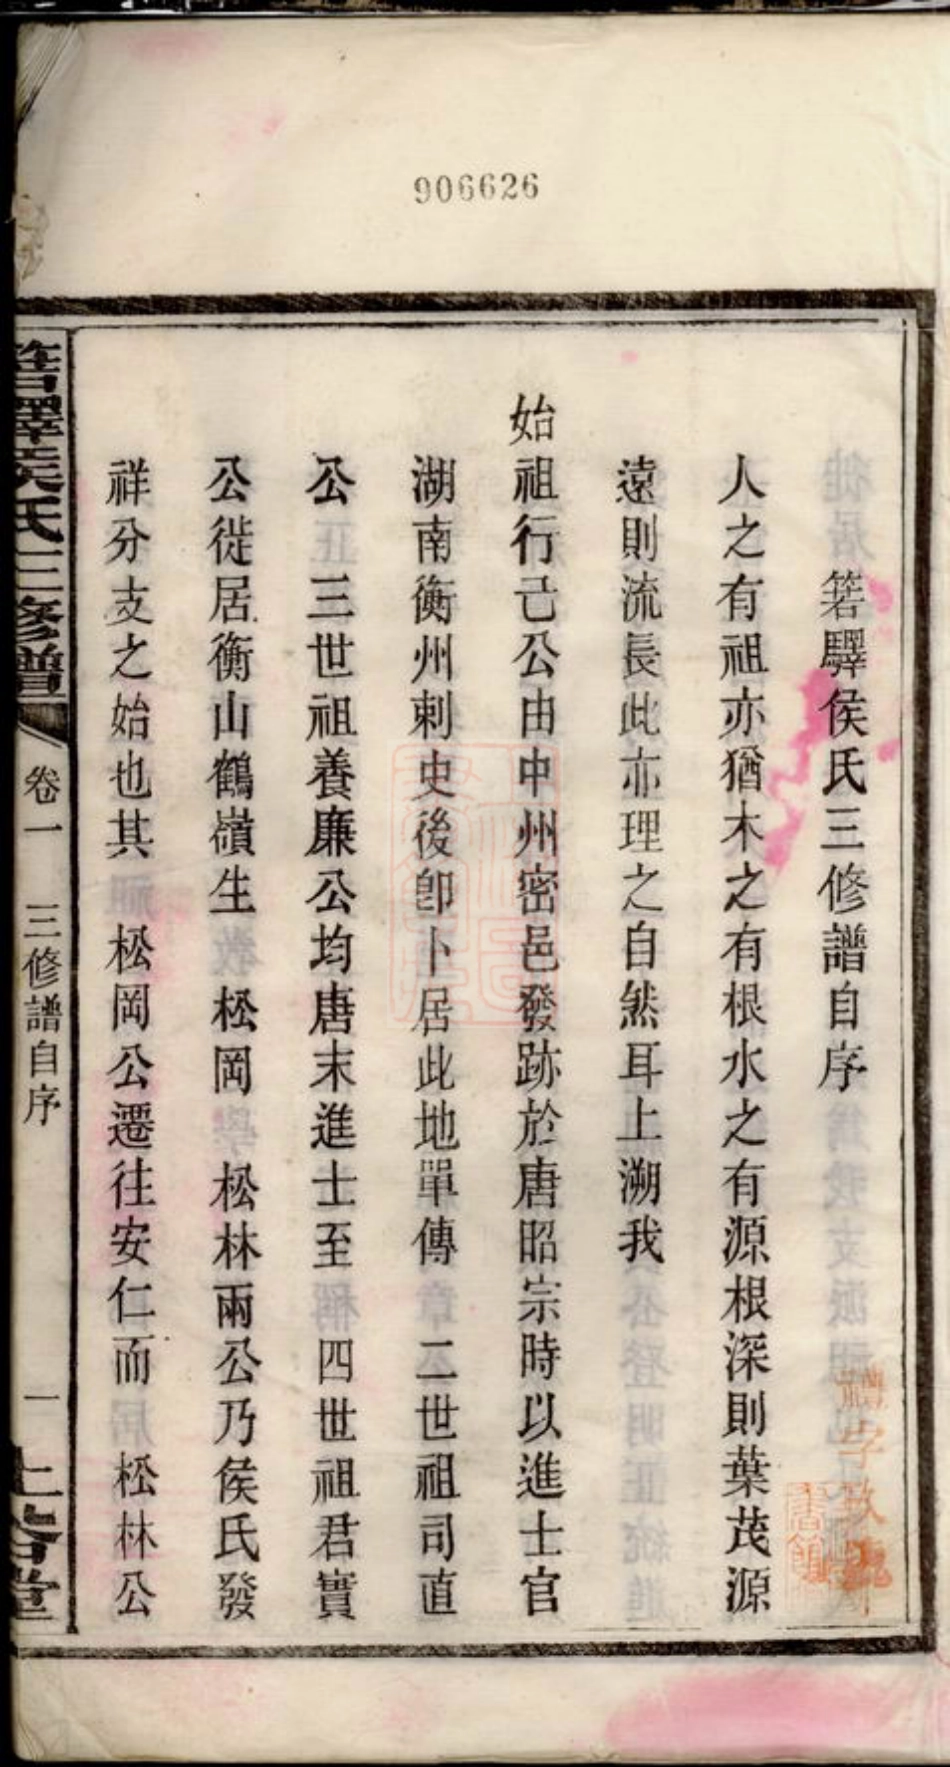 906626
箬驛侯氏三修譜自序
人之有祖亦猶木之有根水之有源根深則葉茂源
遠則流長此亦理之自然耳上溯我
始祖行己公由中州密邑發跡於唐昭宗時以進士官
湖南衡州刺史後卽卜居此地單傳 二世祖司直
公 三世祖養廉公均唐末進士至 四世祖君實
公徙居衡山鶴嶺生 松岡 松林兩公乃侯氏發
祥分支之始也其 松岡公遷往安仁而 松林公
箬驛侯氏三修譜 卷一 三修譜自序 一 上谷堂